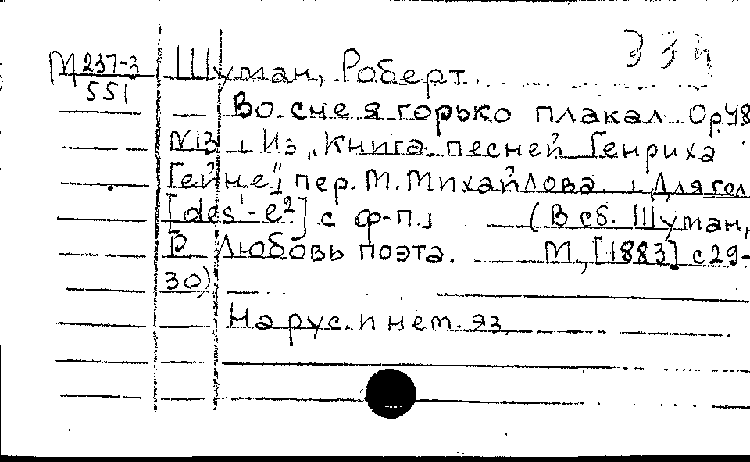 334
М 237-3 Шуман, Роберт.
551
Во сне я горько плакал Op.48
N13. Из „Книга песней Генриха
Гейне", пер. М. Михайлова. Для гол
[des'-e²] с ф-п.
(В сб. Шуман,
Р. Любовь поэта. М., [1883] с 29-
30)
На рус. и нем. яз